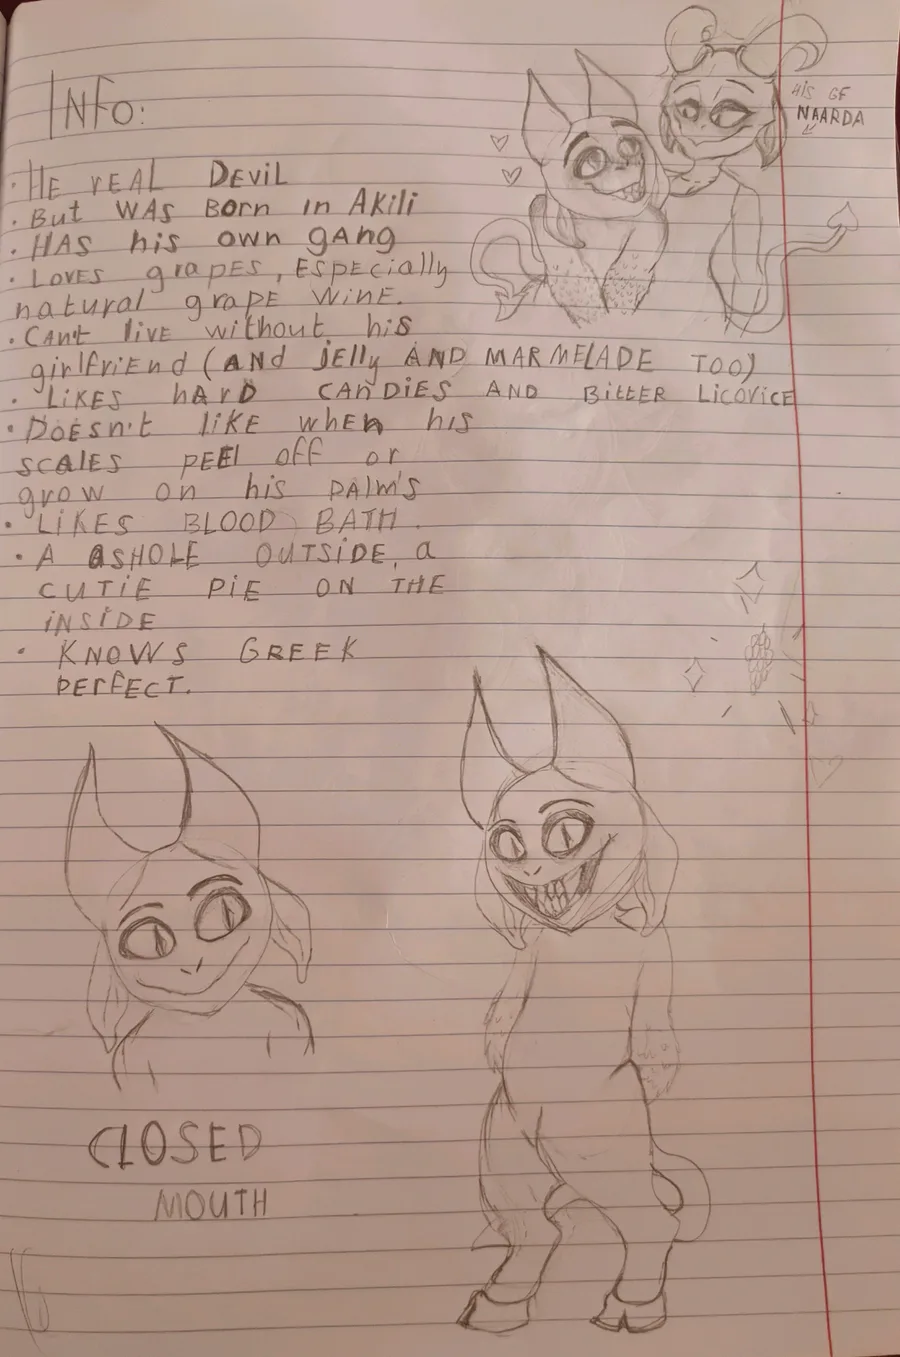 INFO:
HIS GF
NAARDA
· HE rEAL DEViL
· But WAS Born in Akili
· HAS his own gAng
· LOVES grapES, ESpECially
natural grapE WinE.
· CAn't liVE without his
girlfriEnd (AND jElly AND MARMELADE TOO)
· LiKES hArD CANDiES AND BittEr LicoricE
· DoEsn't liKE whEn his
scAlES pEEl off or
grow on his pAlm's
· LiKES BLOOD BATH.
· A ASHOLE OUTSiDE, a
CUTiE PiE ON THE
iNSiDE
· KNOWS GREEK
PErfECT.
CLOSED
MOUTH